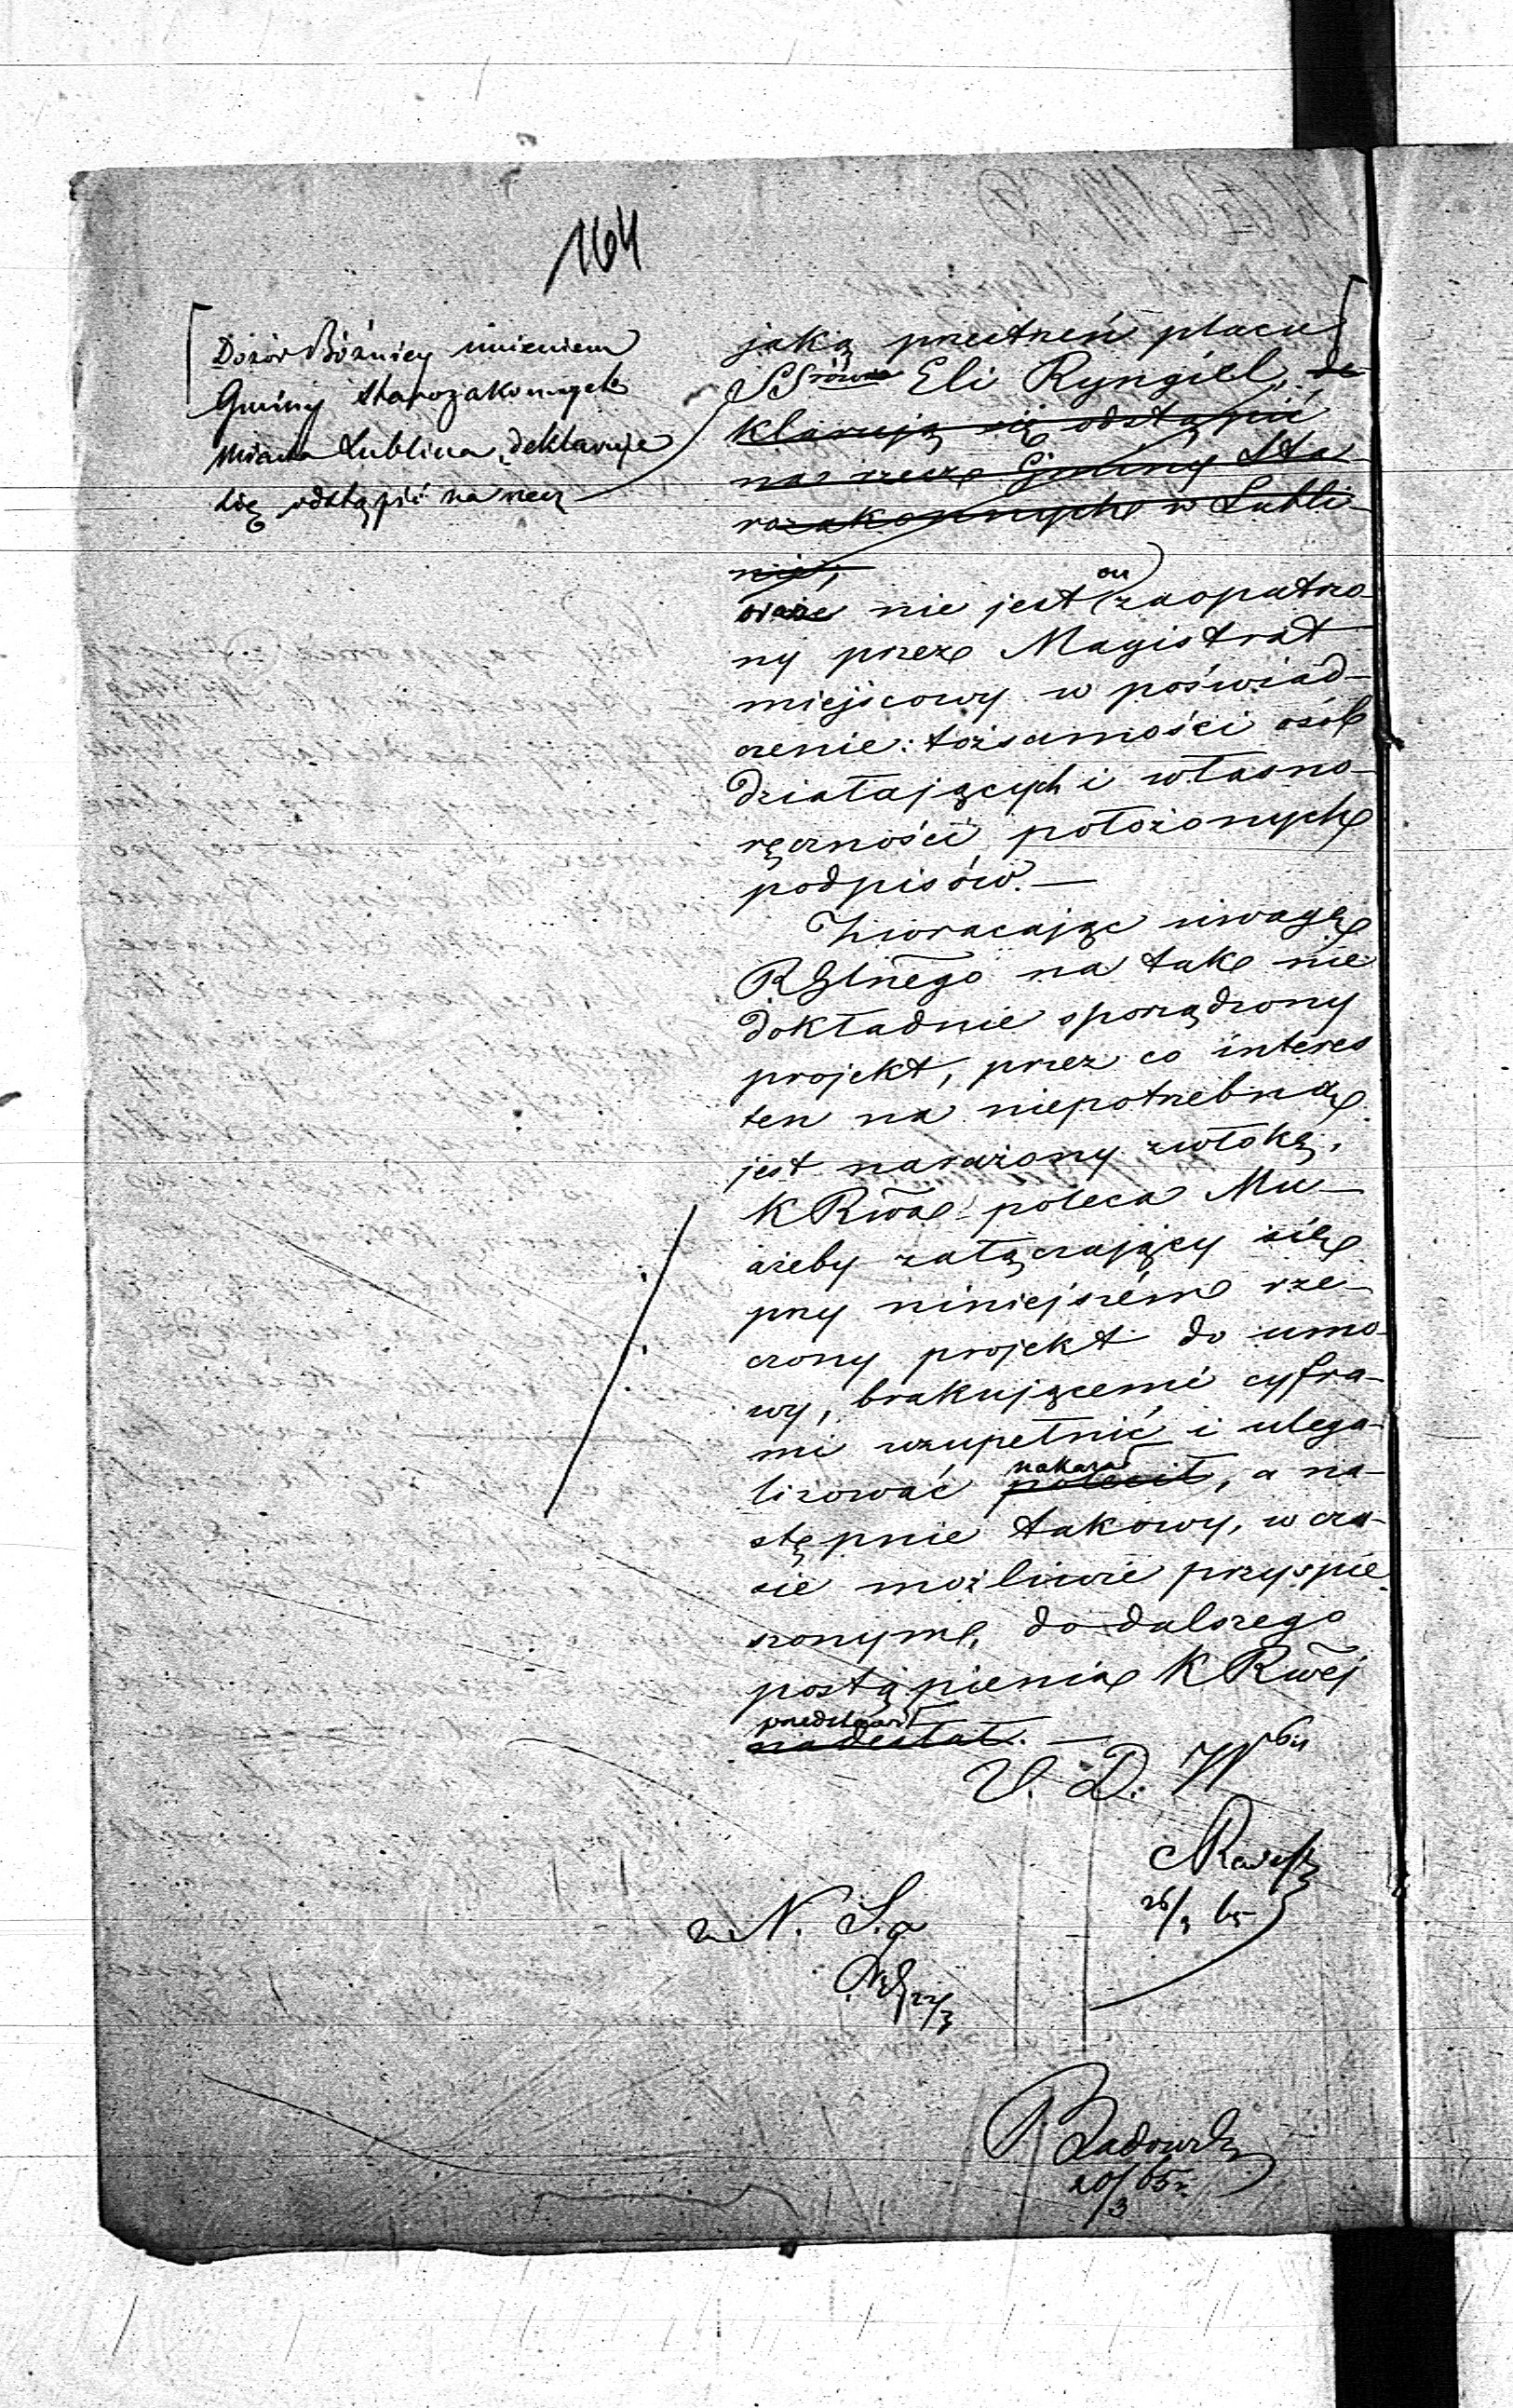 164
Dozór Bóżnicy imieniem
Gminy Starozakonnych
miasta Lublina, deklaruje
się odstąpić na rzecz
jaką przestrzeń placu
SSrowie Eli Ryngiel, de-
klarują się odstąpić
na rzecz Gminy Sta-
rozakonnych w Lubli-
nie;
oraz nie jest on zaopatrzo-
ny przez Magistrat
miejscowy w poświad-
czenie: tożsamości osób
działających i własno-
ręczności położonych
podpisów. —
Zwracając uwagę
RGlnego na tak nie
dokładnie sporządzony
projekt, przez co interes
ten na niepotrzebną
jest narażony zwłokę,
K Rwa poleca Mu
ażeby załączający się
przy niniejszém rze-
czony projekt do umo-
wy, brakującemi cyfra-
mi uzupełnić i ulega-
lizować nakazał
polecił, a na-
stępnie takowy, w cza-
sie możliwie przyspie-
szonym, do dalszego
postąpienia K Rwej
przedstawił
nadesłał. —
V. D. W
26/3 65
N. S.
Badowski
20/3 65 r.